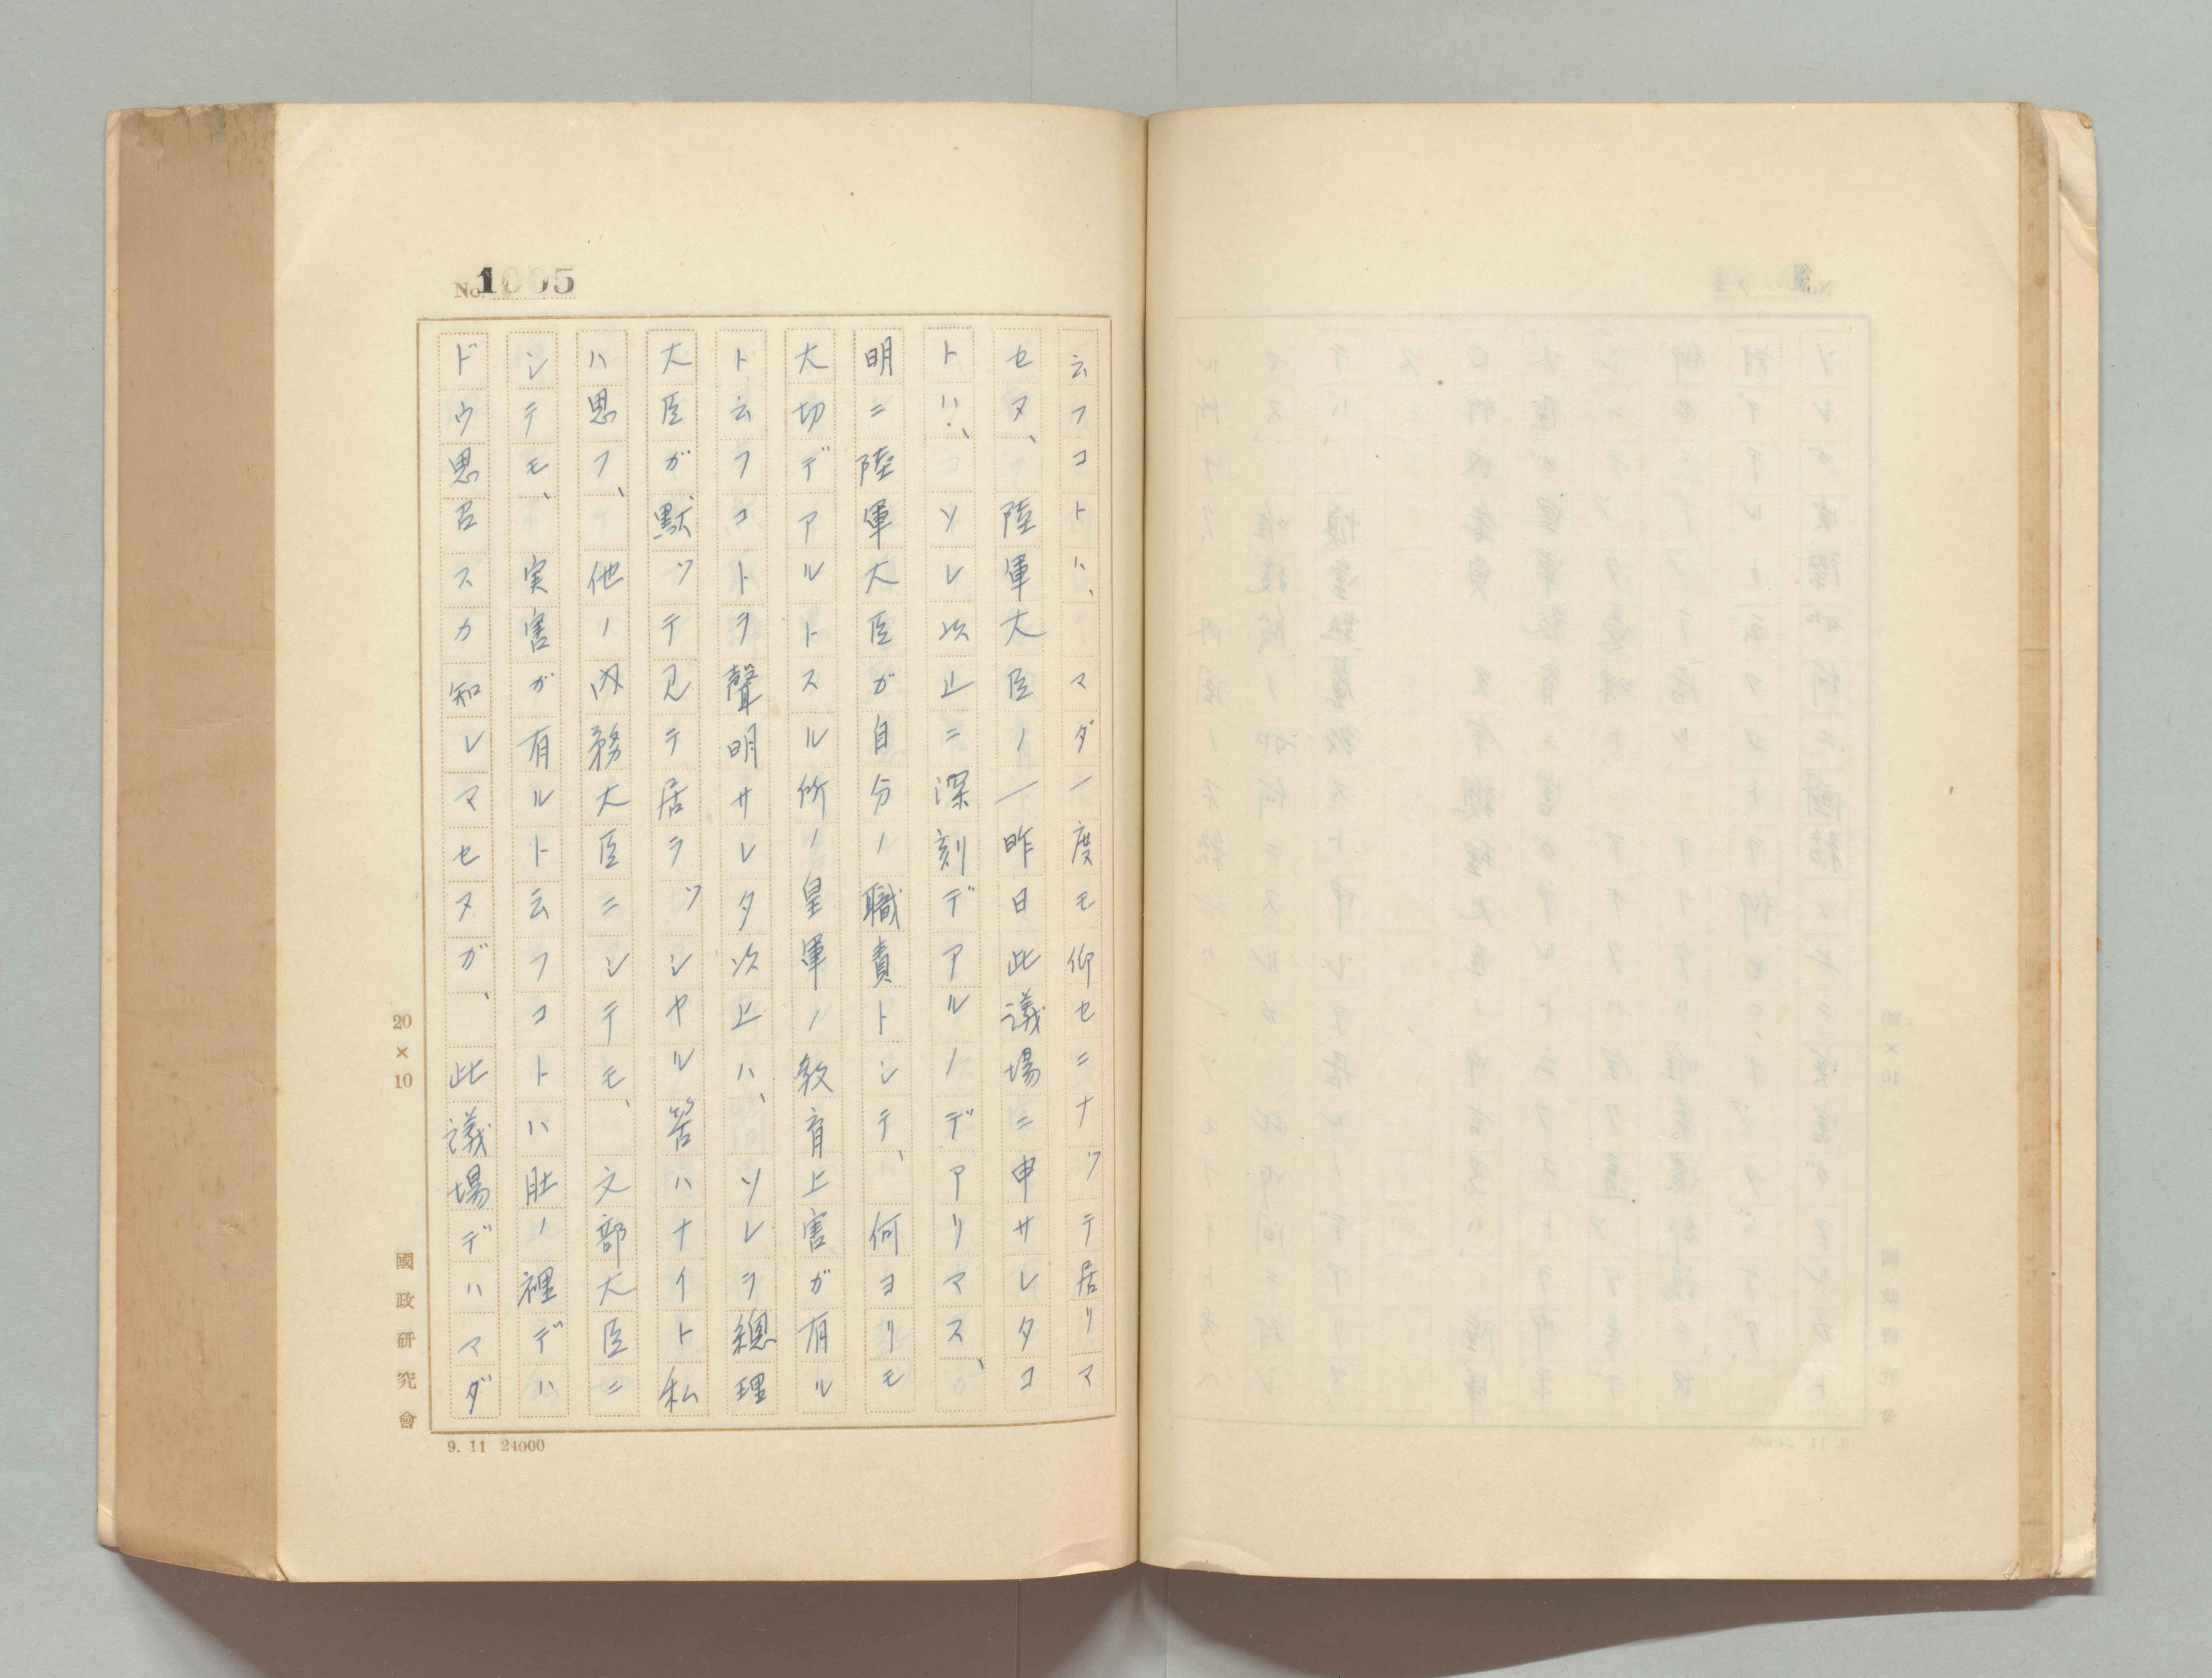 No. 1005
云フコトハ、マダ一度モ仰セニナツテ居リマ
セヌ、陸軍大臣ノ一昨日此議場ニ申サレタコ
トハ、ソレ以上ニ深刻デアルノデアリマス、
明ニ陸軍大臣ガ自分ノ職責トシテ、何ヨリモ
大切デアルトスル所ノ皇軍ノ教育上害ガ有ル
ト云フコトヲ聲明サレタ以上ハ、ソレヲ總理
大臣ガ默ツテ見テ居ラツシヤル筈ハナイト私
ハ思フ、他ノ内務大臣ニシテモ、文部大臣ニ
シテモ、実害ガ有ルト云フコトハ肚ノ裡デハ
ドウ思召スカ知レマセヌガ、此議場デハマダ
20×10
國政研究會
9. 11 24000